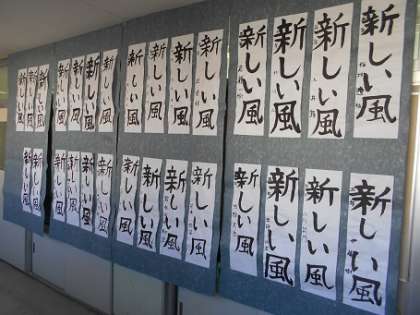 新しい風
新しい風
新しい風
新しい風
新しい風
新しい風
新しい風
新しい風
新しい風
新しい風
新しい風
新しい風
新しい風
新しい風
新しい風
新しい風
新しい風
新しい風
新しい風
新しい風
新しい風
新しい風
新しい風
新しい風
新しい風
新しい風
新しい風
新しい風
新しい風